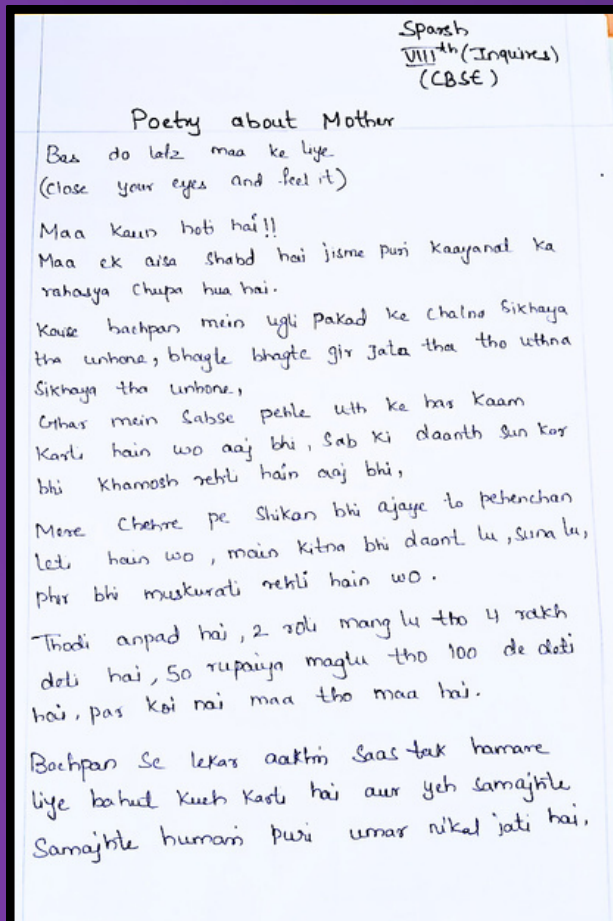 Sparsh
VIIIth (Inquires)
(CBSE)
Poetry about Mother
Bas do lafz maa ke liye
(close your eyes and feel it)
Maa kaun hoti hai!!
Maa ek aisa shabd hai jisme puri kaayanat ka
rahasya chupa hua hai.
Kaise bachpan mein ugli pakad ke chalna sikhaya
tha unhone, bhagte bhagte gir jata tha tho uthna
sikhaya tha unhone,
Ghar mein sabse pehle uth ke har kaam
karti hain wo aaj bhi, sab ki daanth sun kar
bhi khamosh rehti hain aaj bhi,
Mere chehre pe shikan bhi ajaye to pehenchan
leti hain wo, main kitna bhi daant lu, suna lu,
phir bhi muskurati rehti hain wo.
Thodi anpad hai, 2 roti mang lu tho 4 rakh
deti hai, 50 rupaiya maglu tho 100 de deti
hai, par koi nai maa tho maa hai.
Bachpan se lekar aakhri saas tak hamare
liye bahut kuch karti hai aur yeh samajhte
samajhte humari puri umar nikal jati hai.